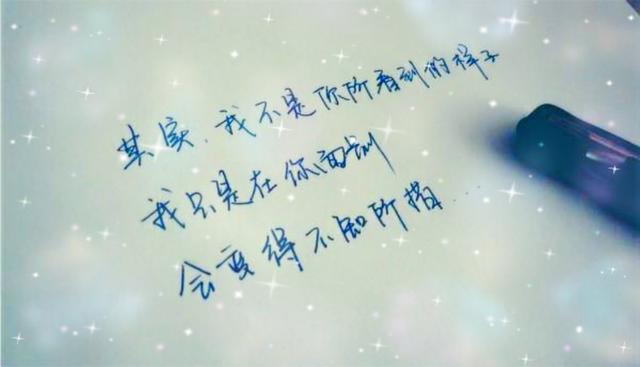 其实、我不是你所看到的样子
我只是在你面前
会变得不知所措...